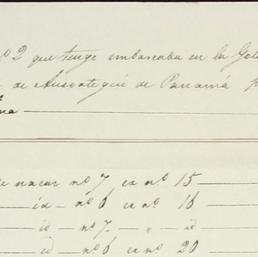 nº 2 que tengo embarcada en la Gol
de Ausoategui de Panamá p
na
e nacar nº 7 ca nº 15
id - nº 6 ca nº 16
id - nº 7 - " - id
id nº 6 ca nº 20